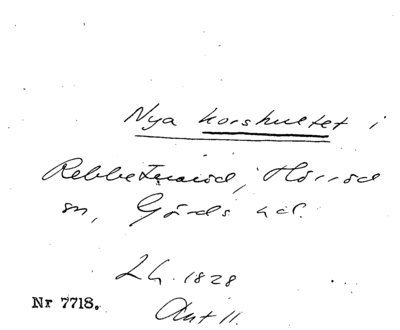 Nya korshultet i
Rebbetuaröd, Hörröd
sn, Gärds hd.
L h. 1828
Nr 7718.
Ant 11.